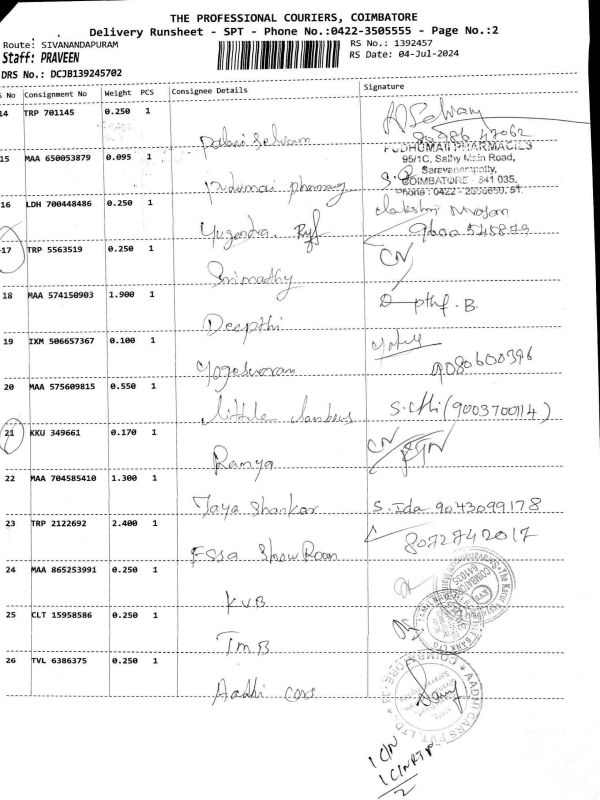 THE PROFESSIONAL COURIERS, COIMBATORE
Delivery Runsheet - SPT - Phone No.:0422-3505555 - Page No.:2
Route: SIVANANDAPURAM RS No.: 1392457
Staff: PRAVEEN RS Date: 04-Jul-2024
DRS No.: DCJB139245702
S No Consignment No Weight PCS Consignee Details Signature
14 TRP 701145 0.250 1
80986 47062
PUDHUMAI PHARMACIES
15 MAA 650053879 0.095 1 95/1C, Sathy Main Road,
Saravanampatty,
COIMBATORE - 641 035.
Pudumai pharmacy
16 LDH 700448486 0.250 1
Yugendra
17 TRP 5563519 0.250 1 CN
Srimadhy
18 MAA 574150903 1.900 1
Deepthi
19 IXM 506657367 0.100 1
Yogeshwaran 9080600396
20 MAA 575609815 0.550 1 (9003700114)
Little
21 KKU 349661 0.170 1 CN
Ramya
22 MAA 704585410 1.300 1
Jaya Shankar S. Ida 9043099178
23 TRP 2122692 2.400 1 8072742017
Essa Show Room
24 MAA 865253991 0.250 1
KVB
25 CLT 15958586 0.250 1
TMB
26 TVL 6386375 0.250 1
Aadhi cars
AADHI CARS PVT. LTD. COIMBATORE-35
1 CN
2